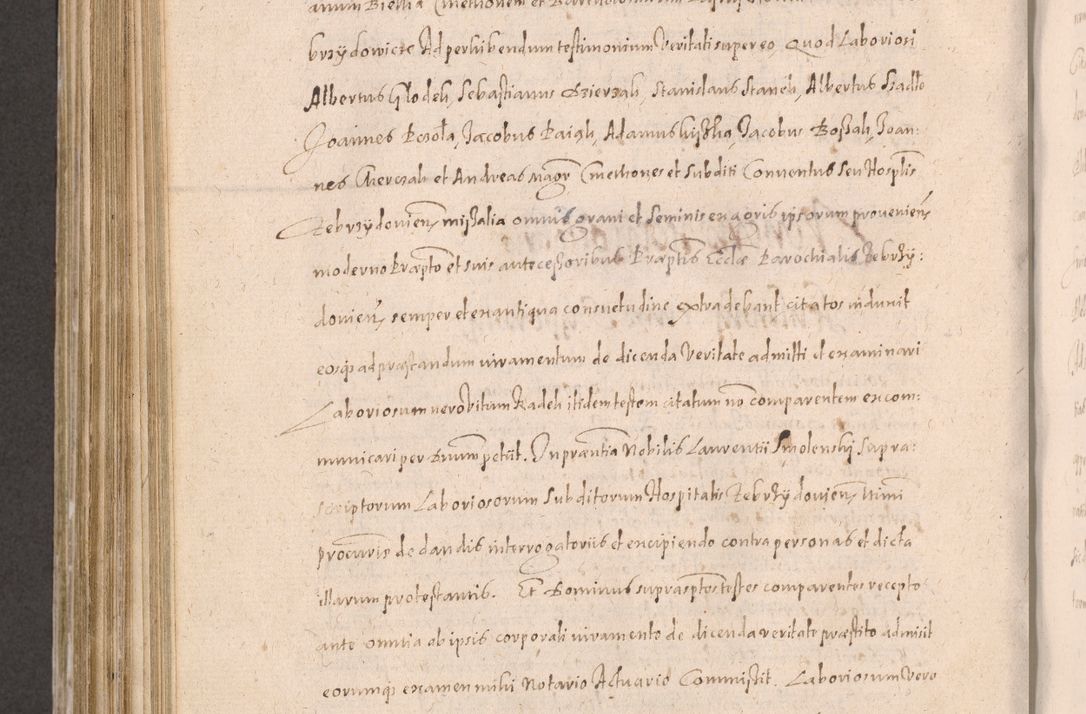 brzydowicze Ad perhibendum testimonium Veritati super eo, Quod Laboriosi
Albertus Glodek, Sebastianus Dzierzak, Stanislaus Stanek, Albertus Szadło
Joannes Pczoła, Jacobus Paiąk, Adamus Łyszka, Jacobus Boszak, Joan:
nes et Andreas Cmethones et subditi Conventus seu Hosplis
Zebrzydovien, missalia omnis grani et seminis ex agris ipsorum provenien,
moderno Præpto et suis antecessoribus Præptis Ecclæ Parochialis Zebrzy:
dovien, semper et ex antiqua consuetudine extradebant citatos induxit
eosq ad præstandum iuramentum de dicenda Veritate admitti et examinari
Laboriosum vero Vitum Radek itidem testem citatum no comparentem excom:
municari per Dnum petiit. In præntia Nobilis Laurentii Smolensky supra:
scriptorum Laboriosorum Subditorum Hospitalis Zebrzydovien,
Procuris de dandis interrogatoriis et excipiendo contra personas et dicta
illarum protestantis. Et Dominus suprasptos testes comparentes recepto
ante omnia ab ipsis corporali iuramento de dicenda veritate præstito admisit
eorumq examen mihi Notario Actuario Commisit. Laboriosum Vero